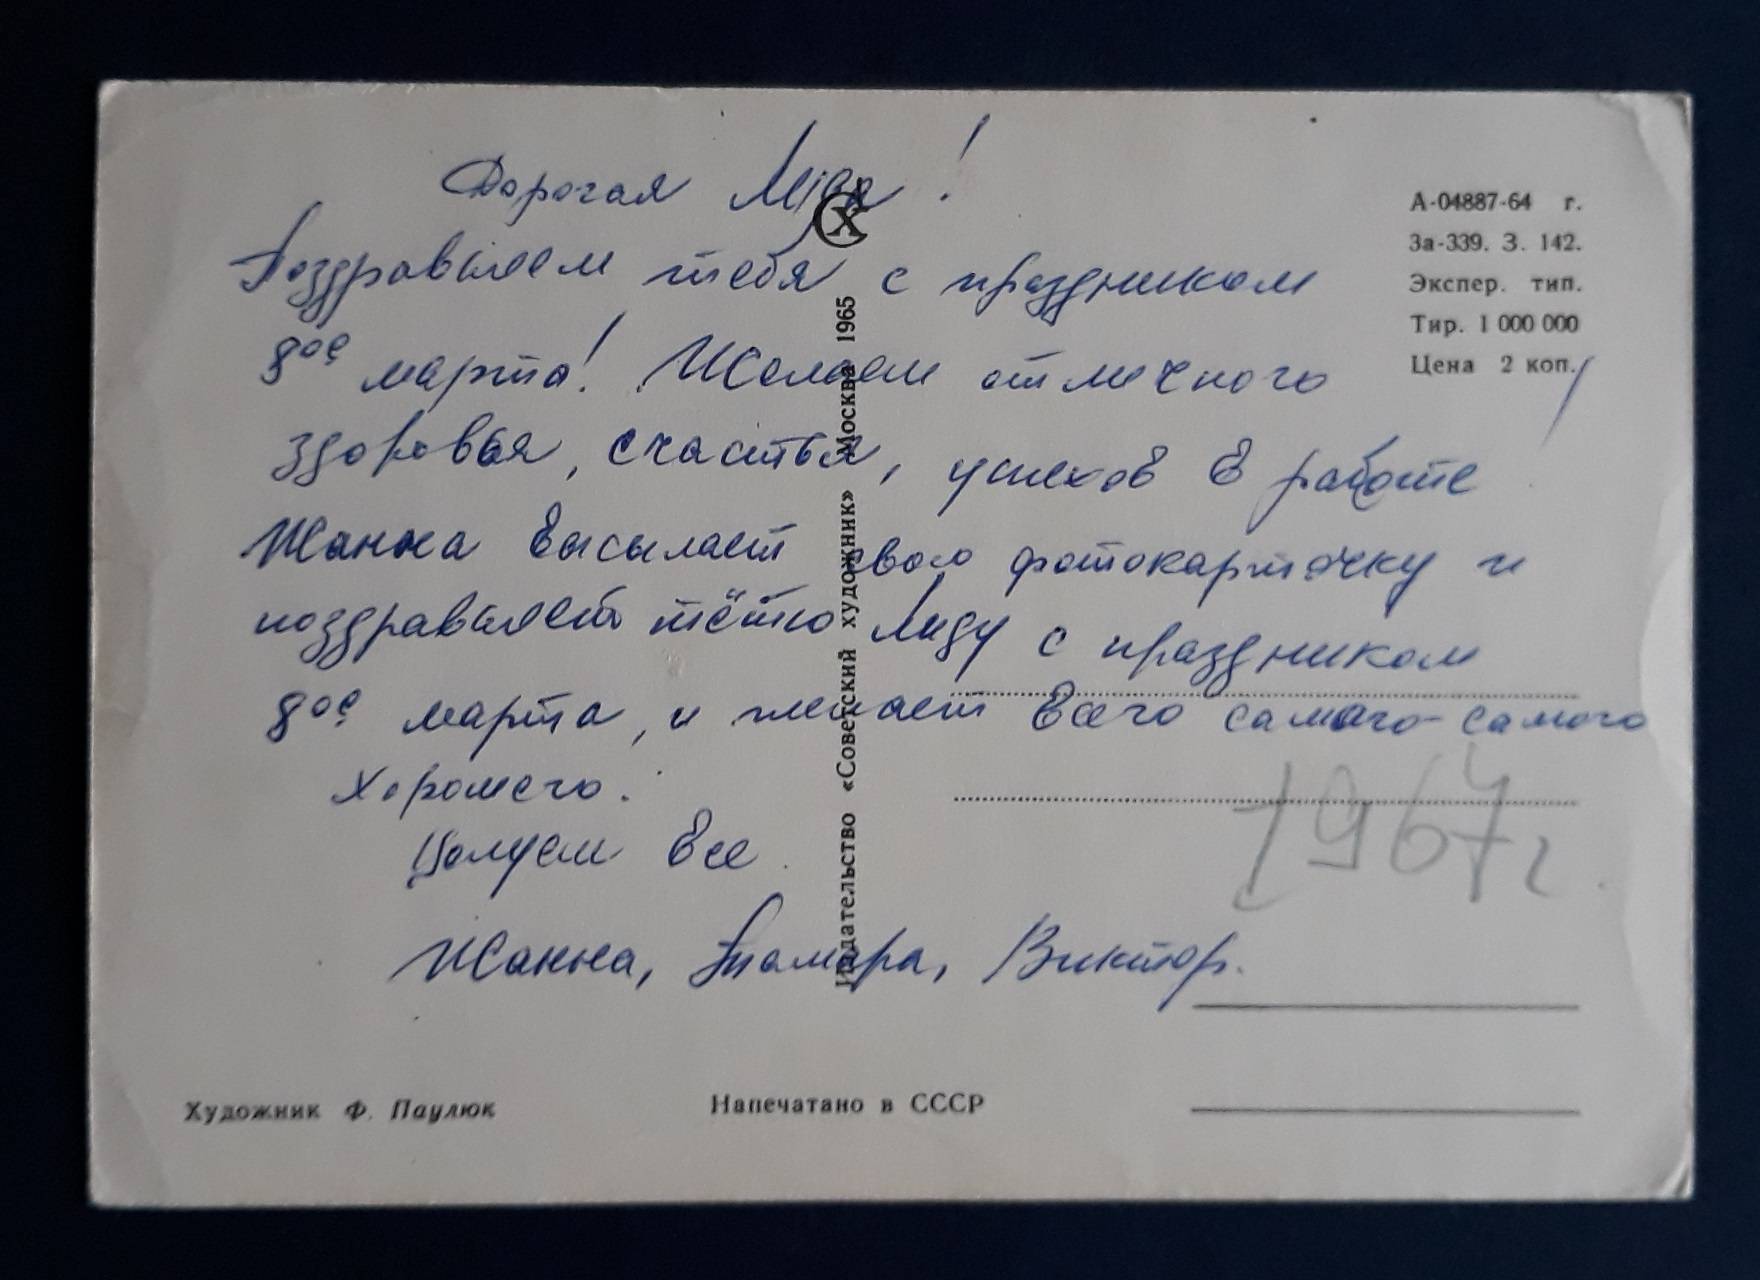 Дорогая !
Поздравляем тебя с праздником
8ое марта! Желаем отличного
здоровья, счастья, успехов в работе
Жанна высылает свою фотокарточку и
поздравляет тётю Лиду с праздником
8ое марта, и желает всего самого-самого
хорошего.
Целуем все
Жанна, Тамара, Виктор.
1967г.
А-04887-64 г.
За-339. З. 142.
Экспер. тип.
Тир. 1 000 000
Цена 2 коп.
Издательство «Советский художник» Москва 1965
Художник Ф. Паулюк
Напечатано в СССР